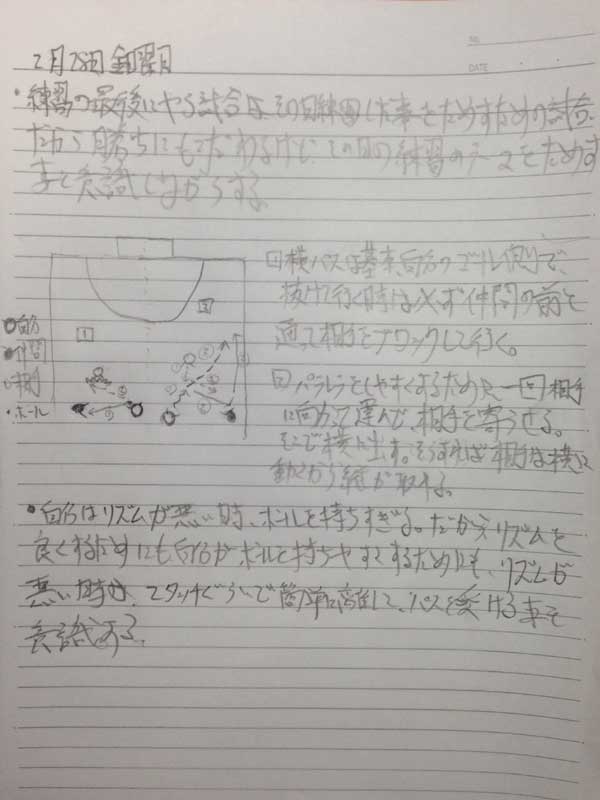 NO.
DATE
2月28日 金曜日
・練習の最後にやる試合は、その日練習した事をためすための試合
だから勝ちにもこだわるけど、その日の練習のテーマをためす
事を意識しながらする。
1 横パスは基本自分のゴール側で、
抜けて行く時は必ず仲間の前を
通って相手をブロックして行く。
2 パラレラをしやすくするために、一回相手
に向かって運んで、相手を寄うせる。
そこで横に出す。そうすれば相手は横に
動くから縦が取れる。
1
2
自分
仲間
相手
・ボール
・自分はリズムが悪い時、ボールを持ちすぎる。だからリズムを
良くするためにも自分がボールを持ちやすくするためにも、リズムが
悪い時は、2タッチぐらいで簡単に離して、パスを受ける事を
意識する。